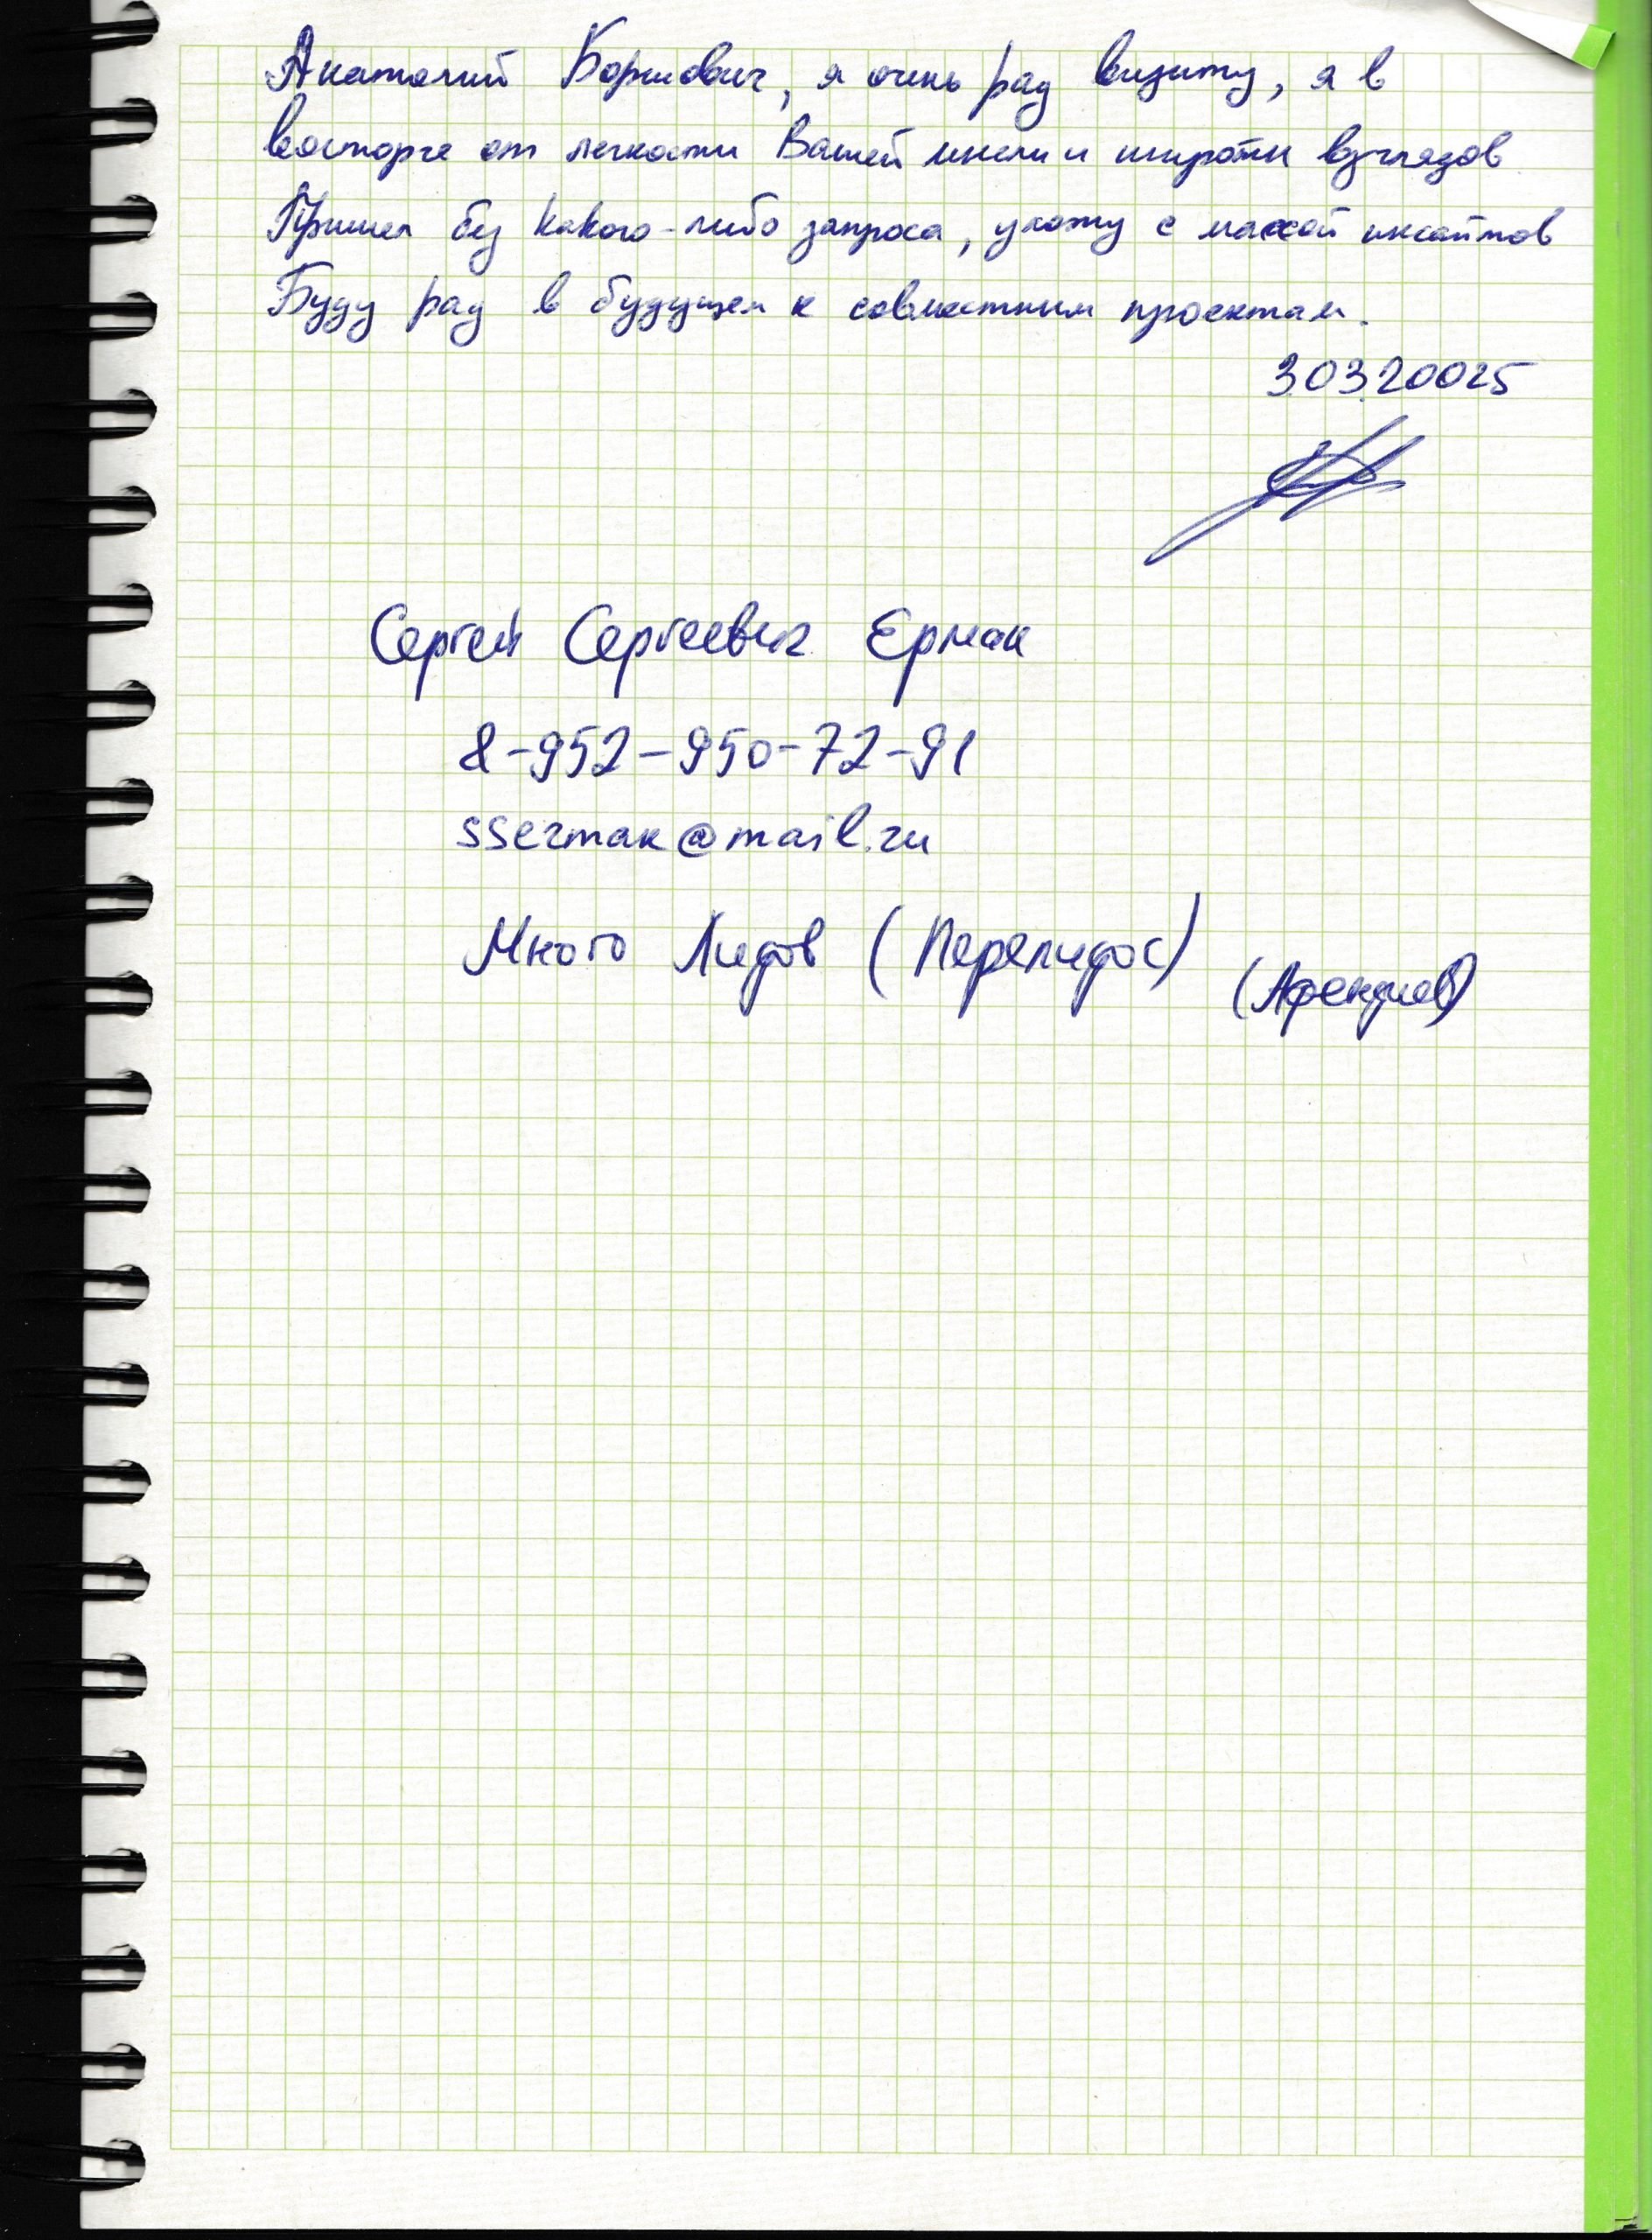 Анатолий Борисович, я очень рад визиту, я в
восторге от легкости Вашей мысли и широты взглядов
Пришел без какого-либо запроса, ухожу с массой инсайтов
Буду рад в будущем к совместным проектам.
3.03.20025
Сергей Сергеевич Ермак
8-952-950-72-91
ssermak@mail.ru
Много Лидов (Перелидос)
(Афендиев)